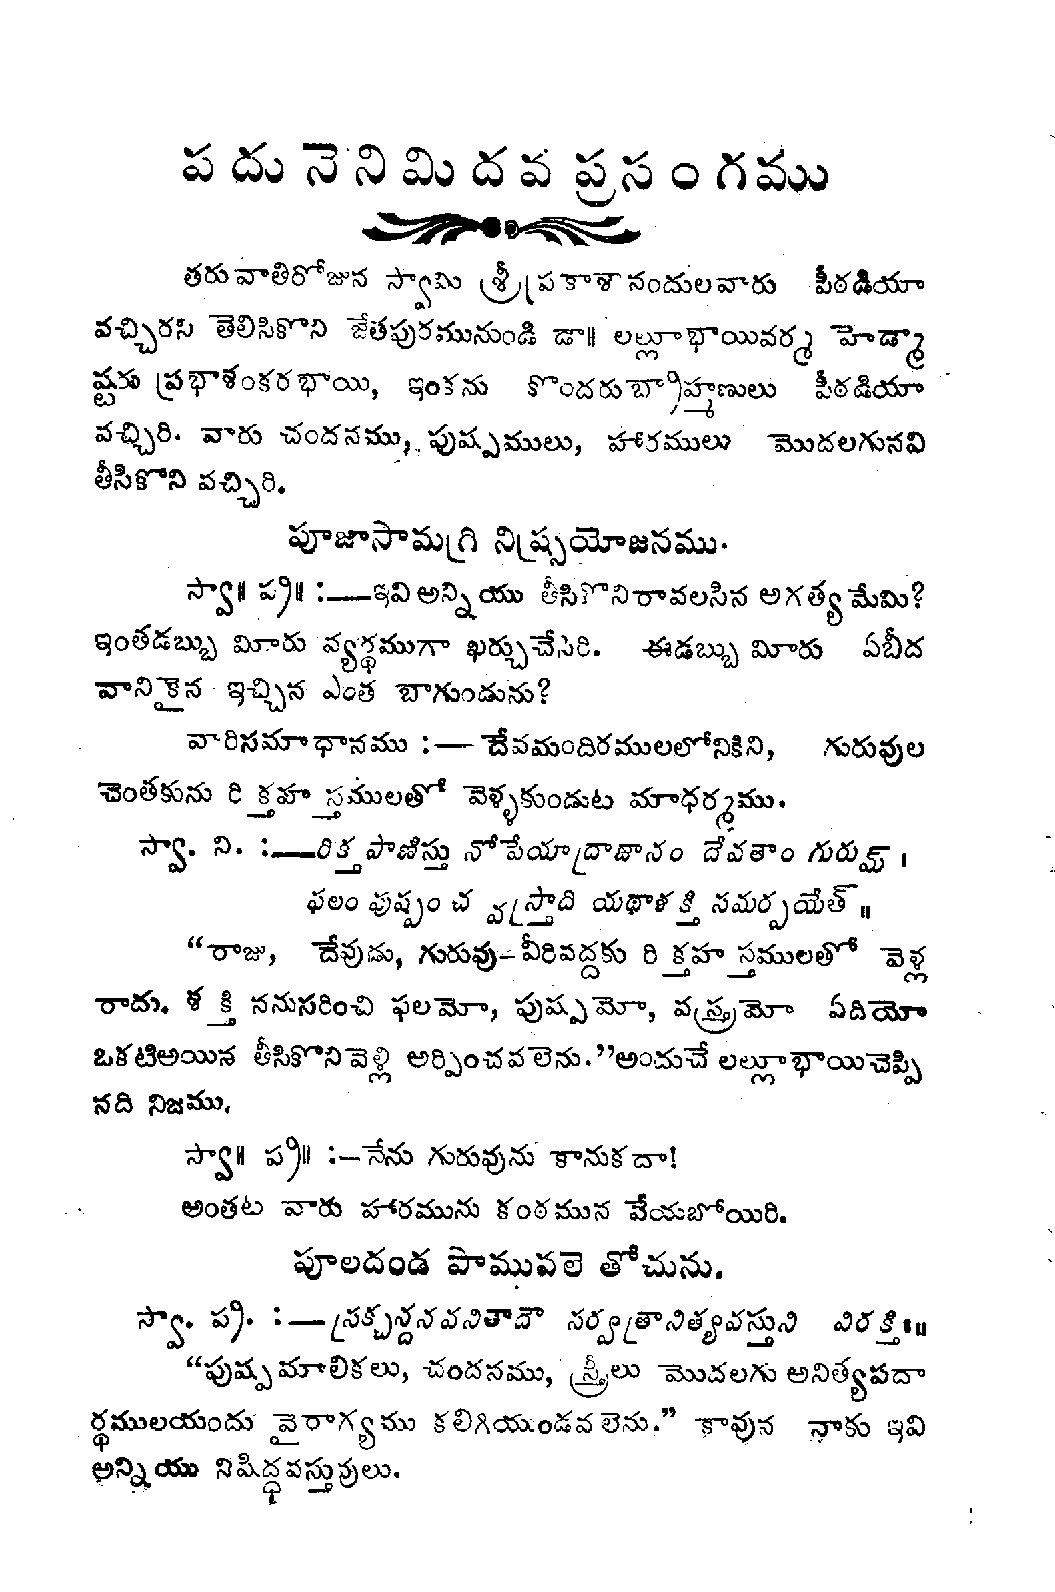 పదునెనిమిదవ ప్రసంగము
తరువాతిరోజున స్వామి శ్రీప్రకాశానందులవారు పీఠడియా
వచ్చిరని తెలిసికొని జేతపురమునుండి డా॥ లల్లూభాయివర్మ హెడ్మా
ష్టరు ప్రభాశంకరభాయి, ఇంకను కొందరుబ్రాహ్మణులు పీఠడియా
వచ్చిరి. వారు చందనము, పుష్పములు, హారములు మొదలగునవి
తీసికొని వచ్చిరి.
పూజాసామగ్రి నిష్ప్రయోజనము.
స్వా॥ ప్ర॥ :—ఇవి అన్నియు తీసికొనిరావలసిన అగత్యమేమి?
ఇంతడబ్బు మీరు వ్యర్థముగా ఖర్చుచేసిరి. ఈడబ్బు మీరు ఏబీద
వానికైన ఇచ్చిన ఎంత బాగుండును?
వారిసమాధానము :— దేవమందిరములలోనికిని, గురువుల
చెంతకును రిక్తహస్తములతో వెళ్ళకుండుట మాధర్మము.
స్వా. ని. :—రిక్తపాణిస్తు నోపేయాద్రాజానం దేవతాం గురుమ్ ।
ఫలం పుష్పం చ వస్త్రాది యథాశక్తి సమర్పయేత్ ॥
“రాజు, దేవుడు, గురువు-వీరివద్దకు రిక్తహస్తములతో వెళ్ల
రాదు. శక్తి ననుసరించి ఫలమో, పుష్పమో, వస్త్రమో ఏదియో
ఒకటిఅయిన తీసికొనివెళ్లి అర్పించవలెను.”అందుచే లల్లూభాయిచెప్పి
నది నిజము.
స్వా॥ ప్ర॥ :—నేను గురువును కానుకదా!
అంతట వారు హారమును కంఠమున వేయబోయిరి.
పూలదండ పామువలె తోచును.
స్వా. ప్ర. :—స్రక్చన్దనవనితాదౌ సర్వత్రానిత్యవస్తుని విరక్తిః॥
“పుష్పమాలికలు, చందనము, స్త్రీలు మొదలగు అనిత్యపదా
ర్థములయందు వైరాగ్యము కలిగియుండవలెను.” కావున నాకు ఇవి
అన్నియు నిషిద్ధవస్తువులు.